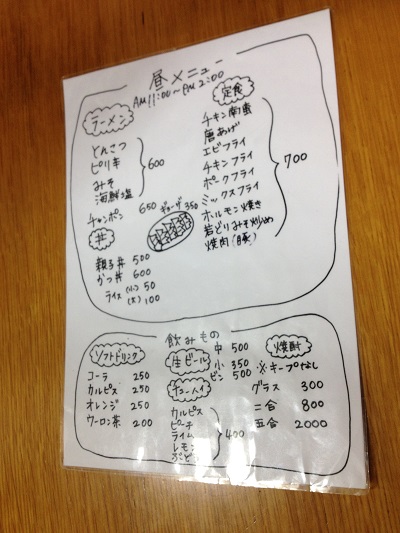 昼メニュー
AM 11:00〜PM 2:00
ラーメン
とんこつ
ピリ辛
みそ
海鮮塩
600
チャンポン 650
ギョーザ 350
丼
親子丼 500
かつ丼 600
ライス(小) 50
(大) 100
定食
チキン南蛮
唐あげ
エビフライ
チキンフライ
ポークフライ
ミックスフライ
ホルモン焼き
若どりみそ炒め
焼肉(豚)
700
飲みもの
ソフトドリンク
コーラ 250
カルピス 250
オレンジ 250
ウーロン茶 200
生ビール
中 500
小 350
ビン 500
チューハイ
カルピス
ピーチ
ライム
レモン
ぶどう
400
焼酎
※キープなし
グラス 300
二合 800
五合 2000